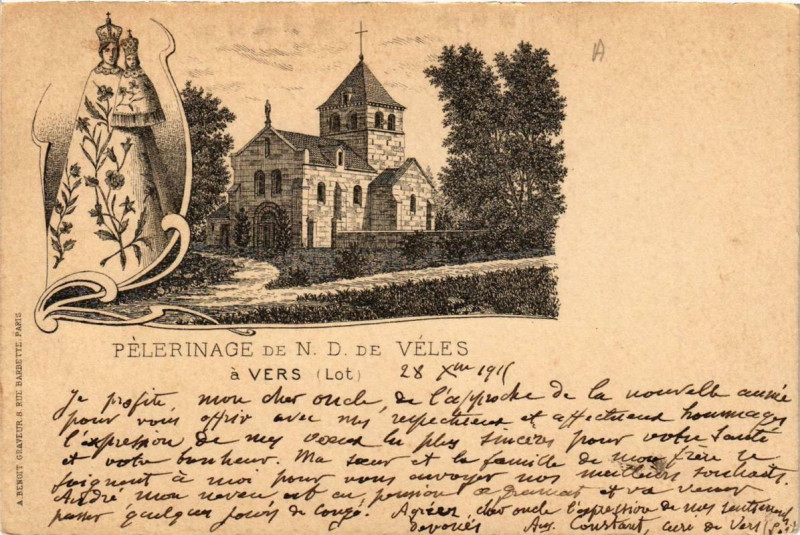 A
PÈLERINAGE DE N. D. DE VÉLES
à VERS (Lot) 28 Xbre 191
Je profite mon cher oncle, de l'approche de la nouvelle année
pour vous offrir avec mes respectueux et affectueux hommages
l'expression de mes vœux les plus sincères pour votre santé
et votre bonheur. Ma sœur et la famille de mon frère se
joignent à moi pour vous envoyer nos meilleurs souhaits.
André mon neveu est en pension à Gramat et va venir
passer quelques jours de congé. Agréez, cher oncle l'expression de mes sentiments
dévoués Aug. Constant, curé de Vers (Lot)
A. BENOIT GRAVEUR, 5, RUE BARBETTE, PARIS